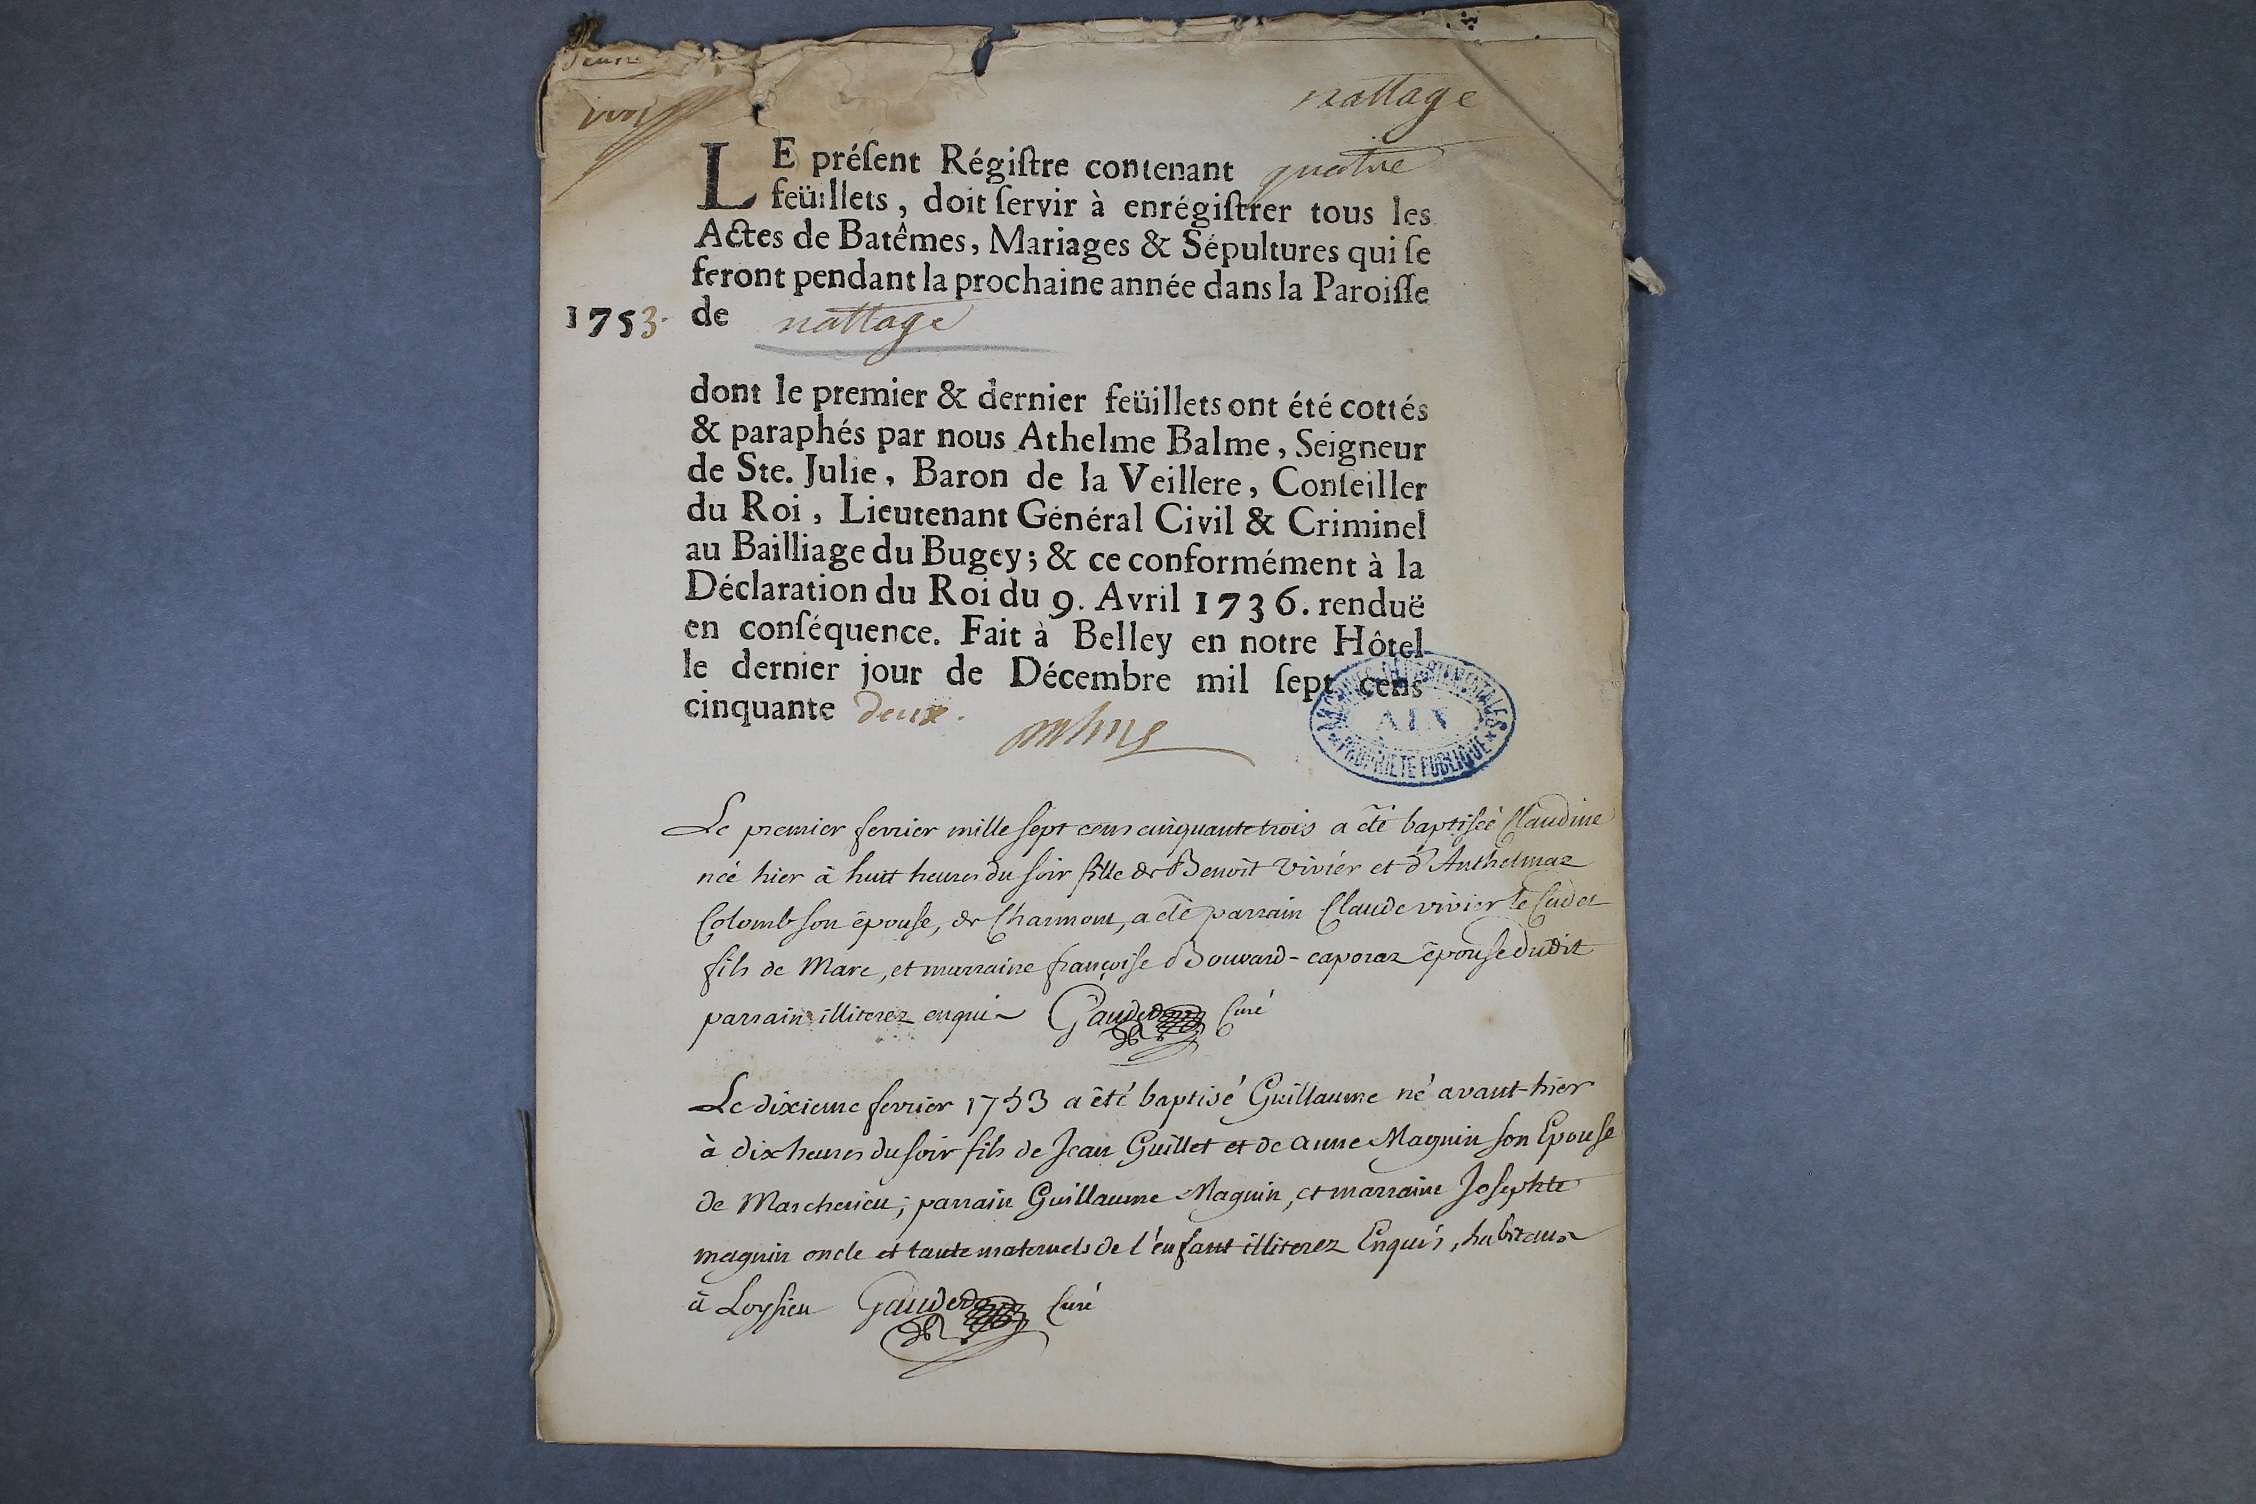 nattage
LE préſent Régiſtre contenant quatre
feüillets, doit ſervir à enrégiſtrer tous les
Actes de Batêmes, Mariages & Sépultures qui ſe
feront pendant la prochaine année dans la Paroiſſe
1753. de nattage
dont le premier & dernier feüillets ont été cottés
& paraphés par nous Athelme Balme, Seigneur
de Ste. Julie, Baron de la Veillere, Conſeiller
du Roi, Lieutenant Général Civil & Criminel
au Bailliage du Bugey; & ce conformément à la
Déclaration du Roi du 9. Avril 1736. renduë
en conſéquence. Fait à Belley en notre Hôtel
le dernier jour de Décembre mil ſept cens
cinquante deux.
ARCHIVES DÉPARTEMENTALES
AIN
PROPRIÉTÉ PUBLIQUE
Le premier fevrier mille sept cens cinquante trois a été baptisée Claudine
née hier à huit heures du soir fille de Benoit vivier et d'Anthelmaz
Colomb son épouse, de Charmont, a été parrain Claude vivier le Cadet
fils de Marc, et marraine françoise Bouvard-caporaz épouse dudit
parrain illiterez enquis Curé
Le dixieme fevrier 1753 a été baptisé Guillaume né avant-hier
à dix heures du soir fils de Jean Guillet et de anne Magnin son Epouse
de Marcherieu; parrain Guillaume Magnin, et marraine Josephte
magnin oncle et tante maternels de l'enfant illiterez Enquis, habitans
à Loysieu Curé